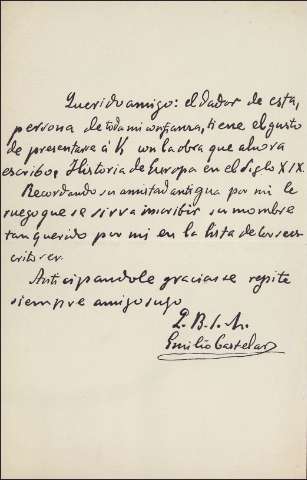 Querido amigo: el dador de esta,
persona de toda mi confianza, tiene el gusto
de presentarse á V. con la obra que ahora
escribo, Historia de Europa en el Siglo XIX.
Recordando su amistad antigua por mi le
ruego que se sirva inscribir su nombre
tan querido por mi en la lista de los sus-
critores.
Anticipandole gracias se repite
siempre amigo suyo
Q. B. S. M.
Emilio Castelar